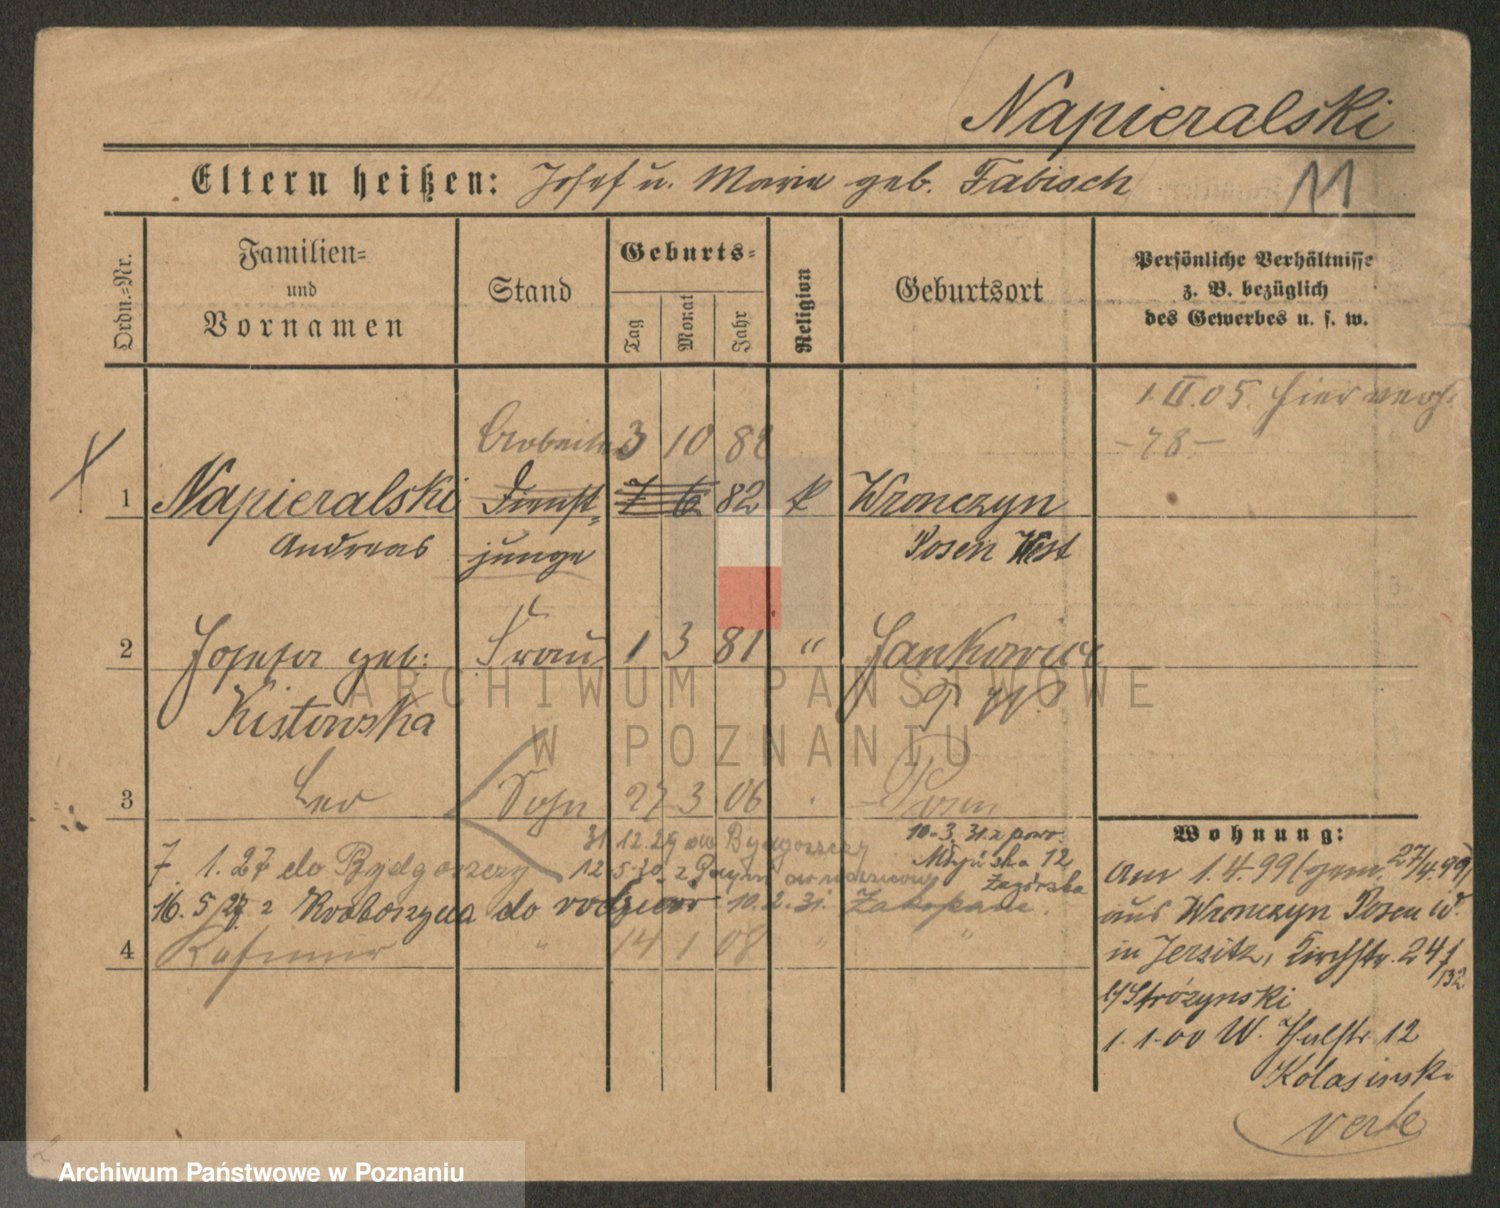 Napieralski
Eltern heißen: Josef u. Marie geb. Fabisch
11
Ordn.-Nr.
Familien-
und
Vornamen
Stand
Geburts-
Tag
Monat
Jahr
Religion
Geburtsort
Persönliche Verhältnisse
z. B. bezüglich
des Gewerbes u. s. w.
1. II. 05. hier
-78-
Arbeiter 3 10 82
1 Napieralski Dienst- 7 6 82 k Wronczyn
Andreas junge Posen West
2 Josefa geb: Frau 1 3 81 " Jankowice
Kistowska
3 Leo Sohn 27 3 06 Posen
31.12.29 Bydgoszczy
10-3.31 z pow.
7. 1.27 do Bydgoszczy 12.5.30. z
Młyńska 12
Zagórska
16.5.27 z do 10.2.31. Zakopane.
4 Kasimir " 14 1 08 " "
Wohnung:
am 1.4.99 (gem. 27/4.99)
aus Wronczyn Posen W.
in Jersitz, Kirchstr. 24
132
b/Strózynski
1.1.00 W. 12
Kolasinski
verte
ARCHIWUM PAŃSTWOWE
W POZNANIU
Archiwum Państwowe w Poznaniu